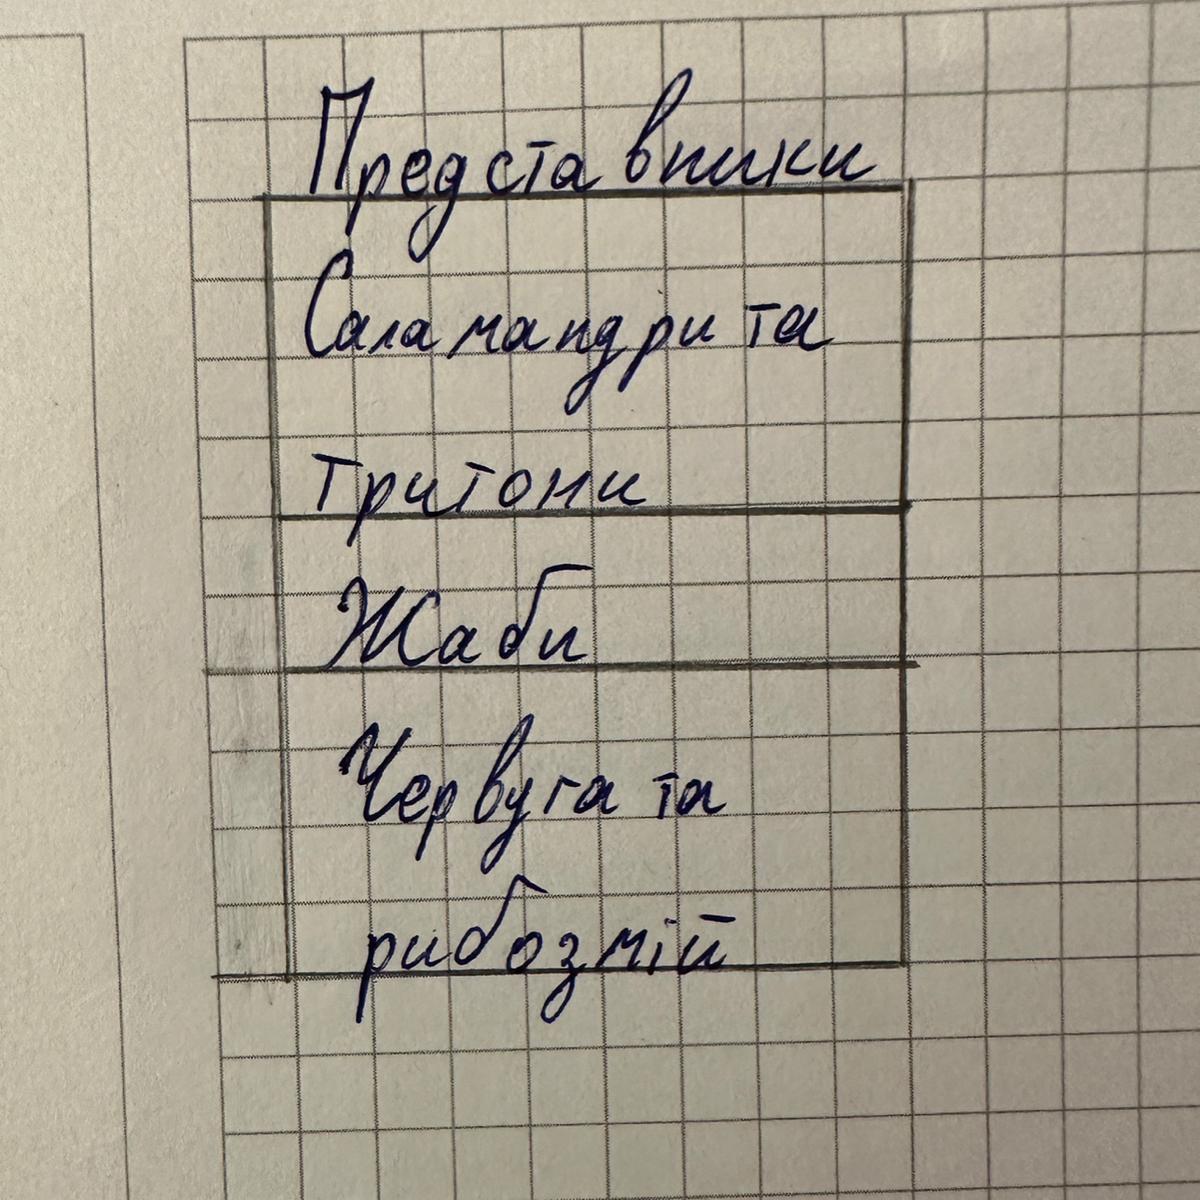 Представники
Саламандри та
тритони
Жаби
Червуга та
рибозмій